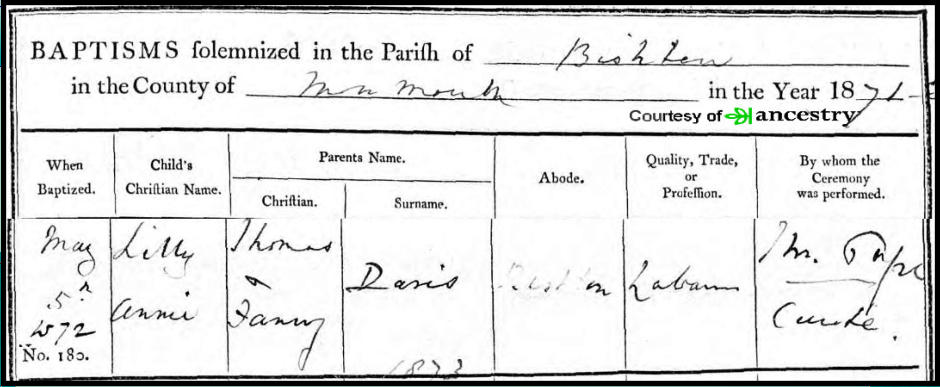 BAPTISMS ſolemnized in the Pariſh of Bishton
in the County of Monmouth in the Year 1871-
Courtesy of ancestry
When Baptized.
Child's Chriſtian Name.
Parents Name.
Chriſtian.
Surname.
Abode.
Quality, Trade, or Profeſſion.
By whom the Ceremony was performed.
May
5th
1872
No. 180.
Lilly
Annie
Thomas
&
Fanny
Davis
Bishton
Labourer
Thos. Pope
Curate.
1873